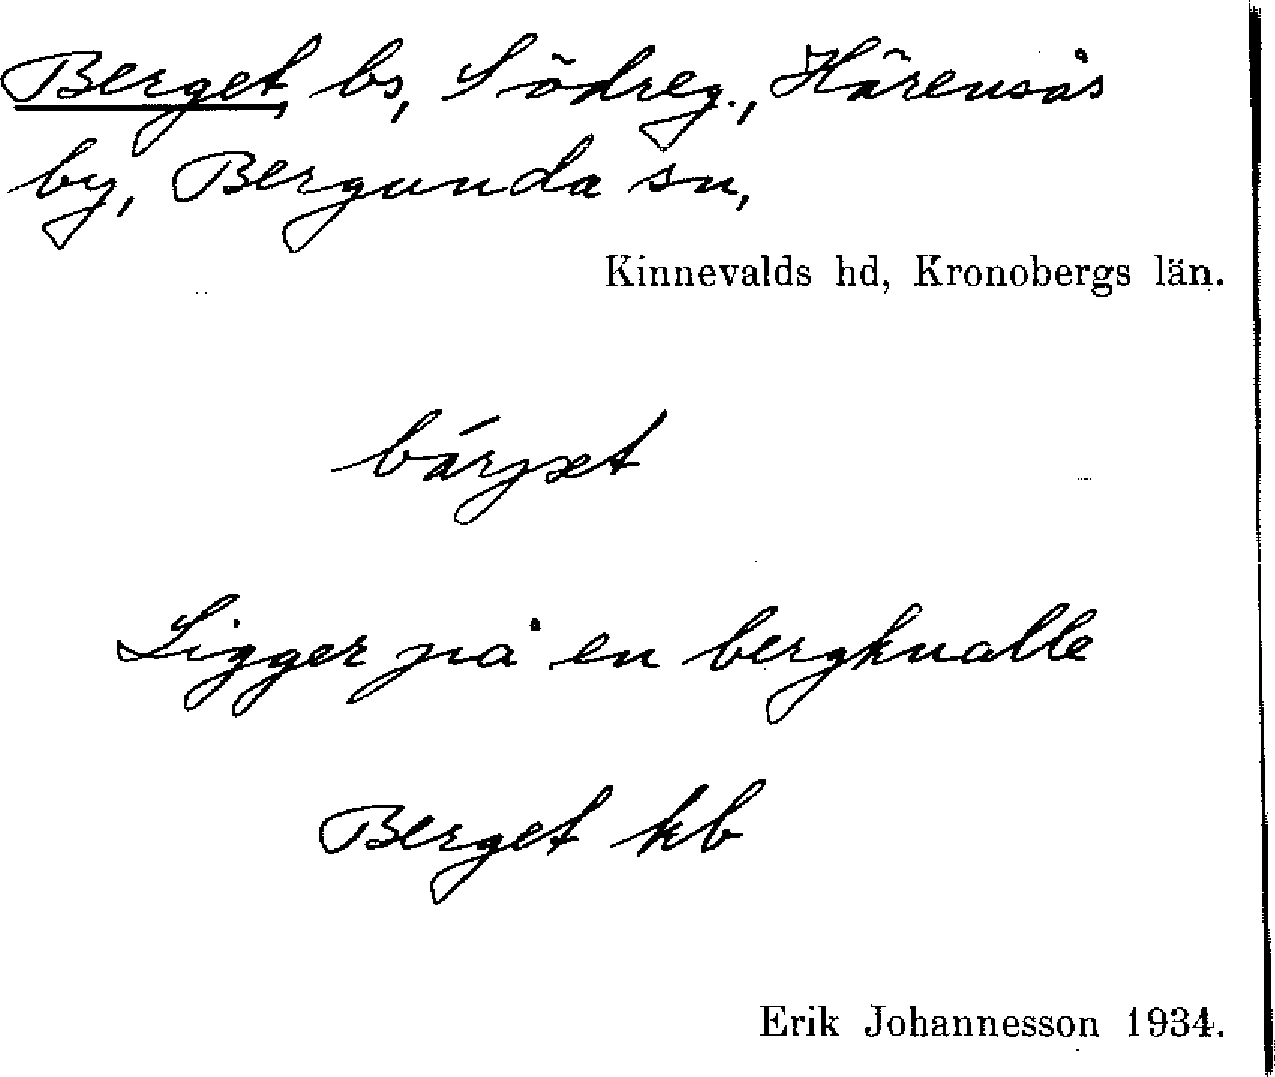 Berget, bs, Södreg., Härensås
by, Bergunda sn,
Kinnevalds hd, Kronobergs län.
bárjet
Ligger på en bergknalle
Berget kb
Erik Johannesson 1934.